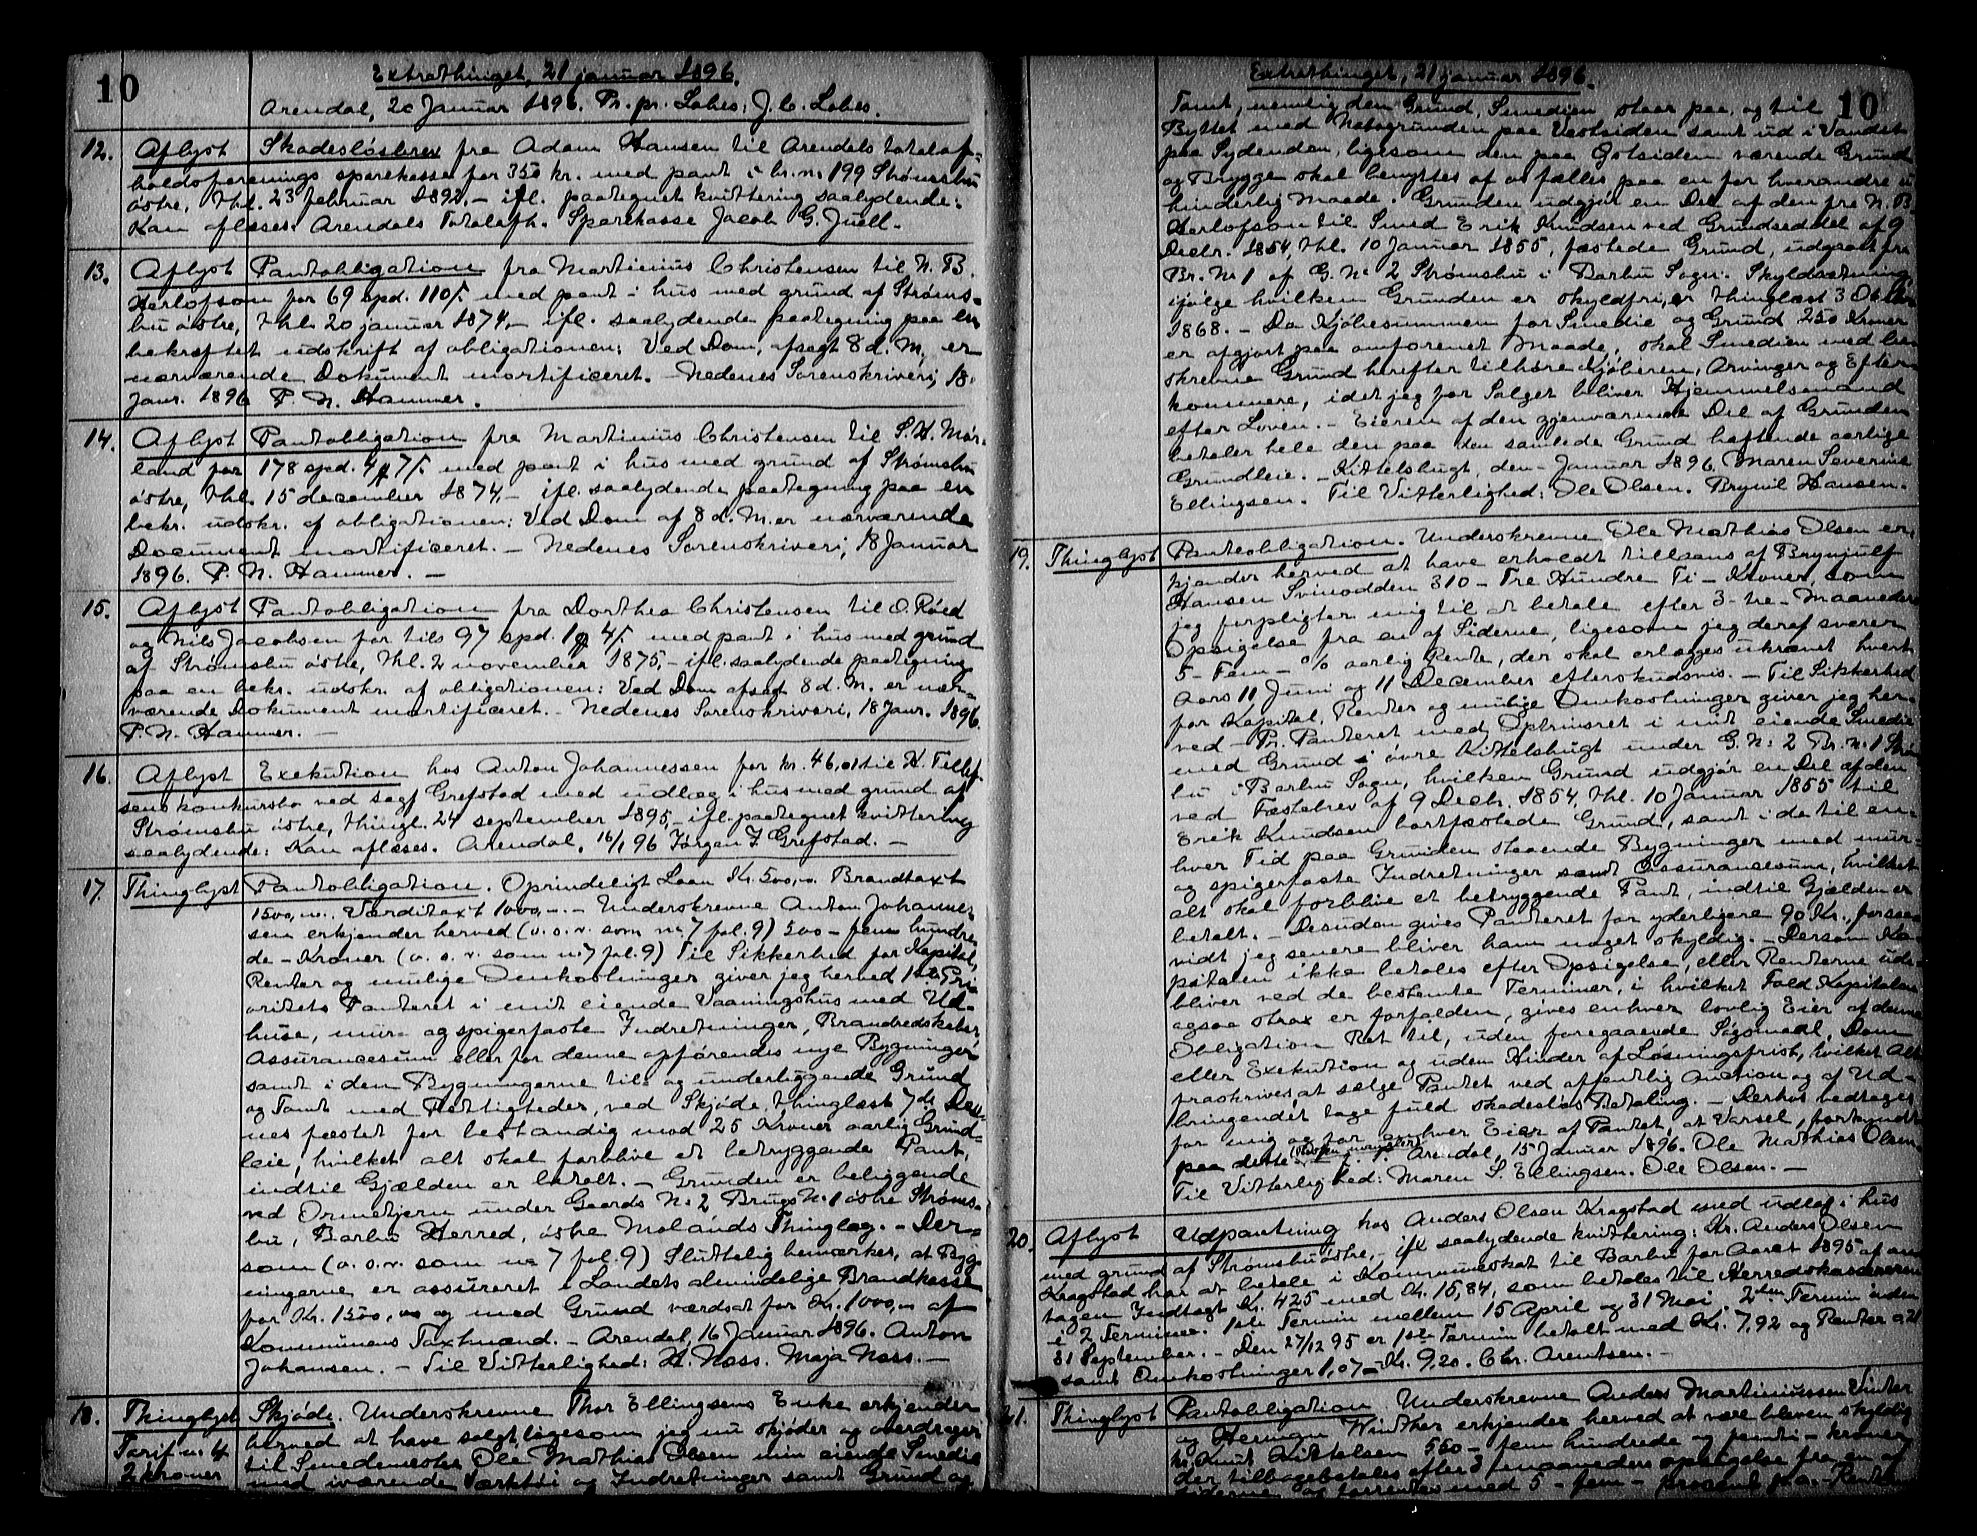 10
Extrathinget, 21 januar 1896.
Arendal, 20 Januar 1896. Pr. pr. Lohes: J. C. Lohes.
12. Aflyst Skadesløsbrev fra Adam Hansen til Arendals totalaf-
holdsforenings sparekasse for 350 kr. med pant i br.no 199 Strømsbu
østre, thl. 23 februar 1892.- ifl. paategnet kvittering saalydende:
Kan aflæses. Arendals Totalafh. Sparekasse Jacob G. Juell.
13. Aflyst Pantobligation fra Martinius Christensen til N. B.
Herlofson for 69 spd. 110 s. med pant i hus med grund af Strøms-
bu østre, thl. 20 januar 1874,- ifl. saalydende paategning paa en
bekræftet udskrift af obligationen: Ved Dom, afsagt 8 d. M. er
nærværende Dokument mortificeret. - Nedenes Sorenskriveri, 18.
Janr. 1896 P. N. Hammer.
14. Aflyst Pantobligation fra Martinius Christensen til S. H. Mør-
land for 178 spd. 4 # 7 s. med pant i hus med grund af Strømsbu
østre, thl. 15 december 1874 - ifl. saalydende paategning paa en
bekr. udskr. af obligationen: Ved Dom af 8 d. M. er nærværende
Document mortificeret. - Nedenes Sorenskriveri, 18 Januar
1896. P. N. Hammer. -
15. Aflyst Pantobligation fra Dorthea Christensen til O. Røed
og Nils Jacobsen for tils 97 spd. 1 # 4 s. med pant i hus med grund
af Strømsbu østre, thl. 2 november 1875,- ifl. saalydende paategning
paa en bekr. udskr. af obligationen: Ved Dom afsagt 8 d. M. er nær-
værende Dokument mortificeret. - Nedenes Sorenskriveri, 18 Janr. 1896.
P. N. Hammer. -
16. Aflyst Exekution hos Anton Johannessen for kr. 46,01 til H. Tellef-
sens konkursbo ved sagf Grefstad med udlæg i hus med grund af
Strømsbu østre, thingl. 24 september 1895,- ifl. paategnet kvittering
saalydende: Kan aflæses. Arendal, 16/1 96 Jørgen J Grefstad. -
17. Thinglyst Pantobligation. Oprindeligt Laan Kr. 500,00. Brandtaxt
1500,00. Værditaxt 1000,-. - Underskrevne Anton Johannes-
sen erkjender herved (o. s. v. som no 7 fol. 9) 500 - fem hundre-
de - Kroner (o. s. v. som no 7 fol. 9) Til Sikkerhed for Kapital,
Renter og mulige Omkostninger giver jeg herved 1ste Pri-
oritets Panteret i mit eiende Vaaningshus med Ud-
huse, mur- og spigerfaste Indretninger, Brandredskaber,
Assurancesum eller for denne opførendes nye Bygninger
samt i den Bygningerne til- og underliggende Grund
og Tomt med Rettigheder, ved Skjøde, thinglæst 7de Den-
nes fæstet for bestandig mod 25 Kroner aarlig Grund-
leie, hvilket alt skal forblive et betryggende Pant,
indtil Gjælden er betalt. - Grunden er beliggende
ved Ormetjern under Gaards No 2 Brugs No 1 østre Strøms-
bu, Barbu Herred, østre Molands Thinglag. - Der-
som (o. s. v. som no 7 fol. 9) Sluttelig bemærkes, at Byg-
ningerne er assureret i Landets almindelige Brandkasse
for Kr. 1500,00 og med Grund værdsat for Kr. 1000,00 af
Kommunens Taxtmænd. - Arendal, 16 Januar 1896. Anton
Johansen. - Til Vitterlighed: H. Næss. Maja Næss. -
18. Thinglyst Skjøde. Underskrevne Thor Ellingsens Enke erkjender
Tarif no 4 herved at have solgt ligesom jeg nu skjøder og overdrager
2 kroner til Smedemester Ole Mathias Olsen min eiende Smedie
med iværende Værktøi og Indretninger samt Grund og
Extrathinget, 21 januar 1896.
10
Tomt, nemlig den Grund, Smedien staar paa, og til
Byttet med Nabogrunden paa Vestsiden samt ud i Vandet
paa Sydenden, ligesom den paa Østsiden værende Grund
og Brygge skal benyttes af os fælles paa en for hverandre u-
hinderlig Maade. Grunden udgjør en Del af den fra N. B.
Herlofson til Smed Erik Knudsen ved Grundseddel af 9
Decbr. 1854, thl. 10 Januar 1855, fæstede Grund, udgaaet fra
Br. No 1 af G. No 2 Strømsbu i Barbu Sogn. Skyldsætning,
ifølge hvilken Grunden er skyldfri, er thinglæst 3 Oktober
1868. - Da Kjøbesummen for Smedie og Grund 250 Kroner
er afgjort paa omforenet Maade, skal Smedien med be-
skrevne Grund herefter tilhøre Kjøberen, Arvinger og Efter-
kommere, idet jeg for Salget bliver Hjemmelsmand
efter Loven. - Eieren af den gjenværende Del af Grunden
betaler hele den paa den samlede Grund heftende aarlige
Grundleie. - Kittelsbugt, den - Januar 1896. Maren Severine
Ellingsen. Til Vitterlighed: Ole Olsen. Brynil Hansen.
19. Thinglyst Panteobligation. Underskrevne Ole Mathias Olsen er-
kjender herved at have erholdt tillaans af Brynjulf
Hansen Svinodden 310 - Tre Hundre Ti - Kroner, som
jeg forpligter mig til at betale efter 3 - tre - Maaneders
Opsigelse fra en af Siderne, ligesom jeg deraf svarer
5 - Fem - % aarlig Rente, der skal erlægges ukrævet hvert
Aars 11 Juni og 11 December efterskudsvis. - Til Sikkerhed
for Kapital, Renter og mulige Omkostninger giver jeg her-
ved - Pr. Panteret med Oprinsret i mit eiende Smedie
med Grund i øvre Kittelsbugt under G. No 2 Br. No 1 Strøms-
bu i Barbu Sogn, hvilken Grund udgjør en Del af den
ved Fæstebrev af 9 Decbr. 1854, thl. 10 Januar 1855 til
Erik Knudsen bortfæstede Grund, samt i de til en-
hver Tid paa Grunden staaende Bygninger med mur-
og spigerfaste Indretninger samt Assurancesum, hvilket
alt skal forblive et betryggende Pant, indtil Gjælden er
betalt. - Desuden gives Panteret for yderligere 90 Kr., forsaa-
vidt jeg senere bliver ham noget skyldig. - Dersom Ka-
pitalen ikke betales efter Opsigelse, eller Renterne ude-
bliver ved de bestemte Terminer, i hvilket Fald Kapitalen
ogsaa strax er forfalden, gives enhver lovlig Eier af denne
Obligation Ret til, uden foregaaende Søgsmaal, Dom
eller Exekution og uden Hinder af Løsningsfrist, hvilket alt
fraskrives at sælge Pantet ved offentlig Auction og af Ud-
bringendet tage fuld skadesløs Betaling. - Derhos vedtages
for mig og for enhver Eier af Pantet, at Varsel, forkyndt
paa dette Arendal, 15 Januar 1896. Ole Mathias Olsen
Til Vitterlighed: Maren S. Ellingsen. Ole Olsen. -
20. Aflyst Udpantning hos Anders Olsen Kragstad med udlæg i hus
med grund af Strømsbu østre,- ifl saalydende kvittering: Hr. Anders Olsen
Kragstad har at betale i Kommuneskat til Barbu for Aaret 1895 af an-
tagen Indtægt Kr. 425 med Kr. 15,84, som betales til Herredskassereren
i 2 Terminer. 1ste Termin mellem 15 April og 31 Mai. 2den Termin inden
31 September. - Den 27/12 95 er 1ste Termin betalt med Kr. 7,92 og Renter 0,21
samt Omkostninger 1,07 - Kr. 9,20. Chr. Arentsen. -
21. Thinglyst Pantobligation Underskrevne Anders Martiniussen Vinter
og Herman Winther erkjender herved at være bleven skyldig
til Knut Kittelsen 550 - fem hundrede og femti - kroner
der tilbagebetales efter 3 maaneders opsigelse fra en af
siderne og forrentes med 5 - fem - procent p. a. - Renten